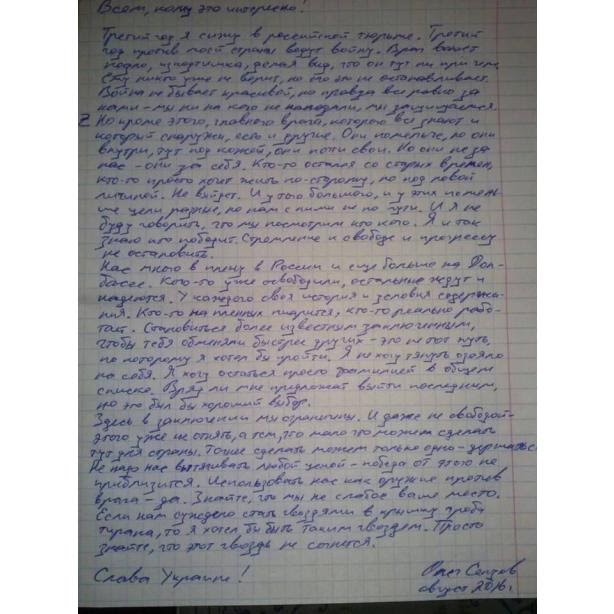 Всем, кому это интересно!
Третий год я сижу в российской тюрьме. Третий
год против моей страны ведут войну. Враг воюет
подло, исподтишка, делая вид, что он тут ни при чём.
Ему никто уже не верит, но его это не останавливает.
Война не бывает красивой, но правда всё равно за
нами – мы ни на кого не нападали, мы защищаемся.
Но кроме этого, главного врага, которого все знают и
который снаружи, есть и другие. Они помельче, но они
внутри, тут под кожей, они почти свои. Но они не за
нас – они за себя. Кто-то остался со старых времён,
кто-то просто хочет жить по-старому, но под новой
личиной. Не выйдет. И у того большого, и у этих помель-
че цели разные, но нам с ними не по пути. И я не
буду говорить, что мы посмотрим кто кого. Я и так
знаю кто победит. Стремление к свободе и прогрессу
не остановить.
Нас много в плену в России и ещё больше на Дон-
бассе. Кого-то уже освободили, остальные ждут и
надеются. У каждого своя история и условия содержа-
ния. Кто-то на пленных пиарится, кто-то реально рабо-
тает. Становиться более известным заключенным,
чтобы тебя обменяли быстрее других – это не тот путь,
по которому я хотел бы пройти. Я не хочу тянуть одеяло
на себя. Я хочу остаться просто фамилией в общем
списке. Вряд ли мне предложат выйти последним,
но это был бы хороший выбор.
Здесь в заключении мы ограничены. И даже не свободой –
этого уже не отнять, а тем, что мало что можем сделать
тут для страны. Точнее сделать можем только одно – держаться.
Не надо нас вытягивать любой ценой – победа от этого не
приблизится. Использовать нас как оружие против
врага – да. Знайте, что мы не слабое ваше место.
Если нам суждено стать гвоздями в крышку гроба
тирана, то я хотел бы быть таким гвоздём. Просто
знайте, что этот гвоздь не согнется.
Слава Украине!
Олег Сенцов
август 2016г.